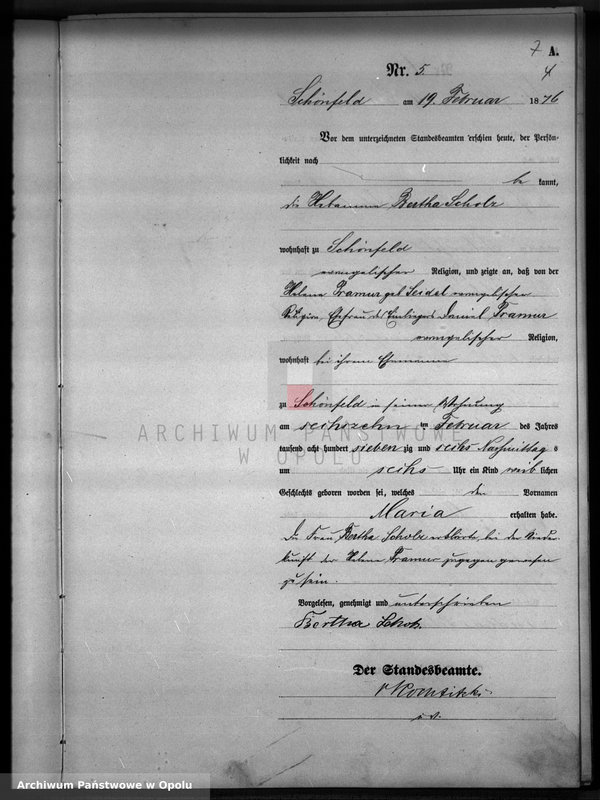 7 A.
4
Nr. 5
Schönfeld am 19. Februar 1876
Vor dem unterzeichneten Standesbeamten erschien heute, der Persön-
lichkeit nach
be kannt,
die Hebamme Bertha Scholz
wohnhaft zu Schönfeld
evangelischer Religion, und zeigte an, daß von der
Helena Pramur geb Seidel evangelischer
Religion, Ehefrau des Einliegers Daniel Pramur
evangelischer Religion,
wohnhaft bei ihrem Ehemanne
zu Schönfeld in seiner Wohnung
am sechszehn ten Februar des Jahres
tausend acht hundert siebenzig und sechs Nachmittag s
um sechs Uhr ein Kind weib lichen
Geschlechts geboren worden sei, welches den Vornamen
Maria erhalten habe.
Die Frau Bertha Scholz erklärte, bei der Nieder-
kunft der Helene Pramur zugegen gewesen
zu sein.
Vorgelesen, genehmigt und unterschrieben
Bertha Scholz.
Der Standesbeamte.
ARCHIWUM PAŃSTWOWE
W OPOLU
Archiwum Państwowe w Opolu